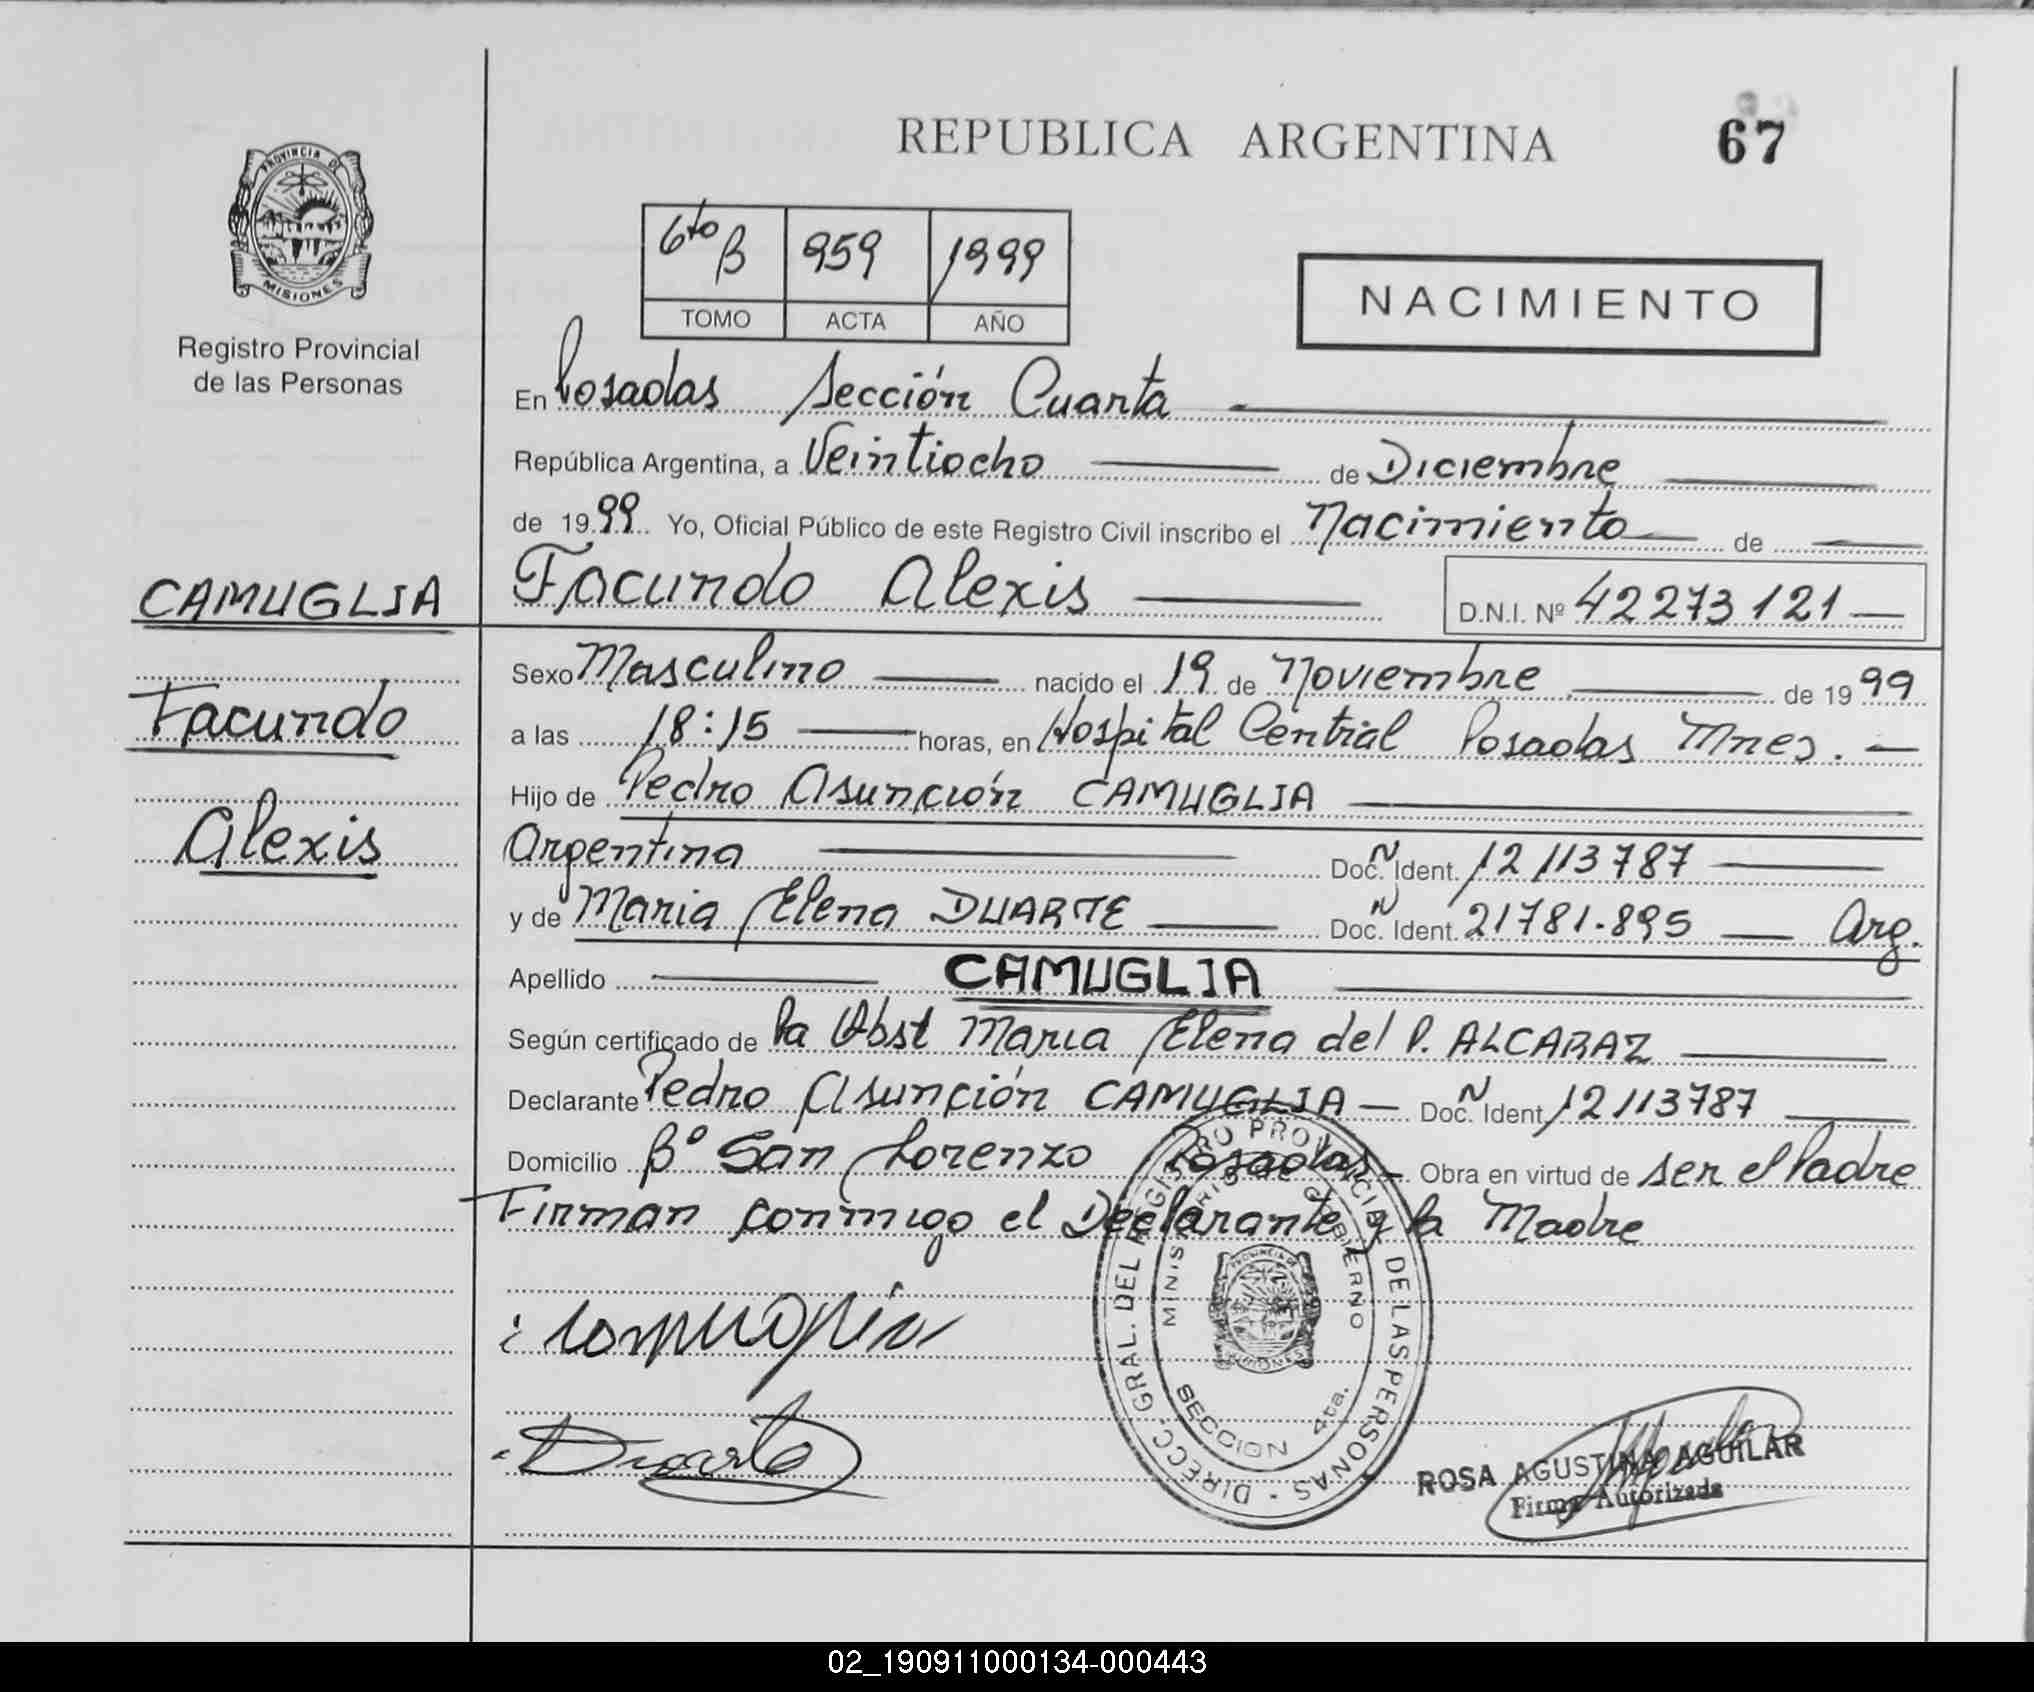 REPUBLICA ARGENTINA
67
PROVINCIA DE
MISIONES
Registro Provincial
de las Personas
6to B 959 1999
TOMO ACTA AÑO
NACIMIENTO
En Posadas Sección Cuarta
República Argentina, a Veintiocho de Diciembre
de 1999 Yo, Oficial Público de este Registro Civil inscribo el Nacimiento de
CAMUGLIA
Facundo Alexis D.N.I. Nº 42273121
Sexo Masculino nacido el 19 de Noviembre de 1999
Facundo
a las 18:15 horas, en Hospital Central Posadas Mnes.
Hijo de Pedro Asunción CAMUGLIA
Alexis
Argentina Doc. N Ident. 12113787
y de Maria Elena DUARTE Doc. N Ident. 21781.895 Arg.
Apellido CAMUGLIA
Según certificado de la Obst Maria Elena del P. ALCARAZ
Declarante Pedro Asunción CAMUGLIA Doc. N Ident. 12113787
Domicilio Bº San Lorenzo Posadas Obra en virtud de ser el Padre
Firman conmigo el Declarante y la Madre
DIRECC. GRAL. DEL REGISTRO PROVINCIAL DE LAS PERSONAS
MINISTERIO DE GOBIERNO
SECCION 4ta.
Duarte
ROSA AGUSTINA AGUILAR
Firma Autorizada
02_190911000134-000443